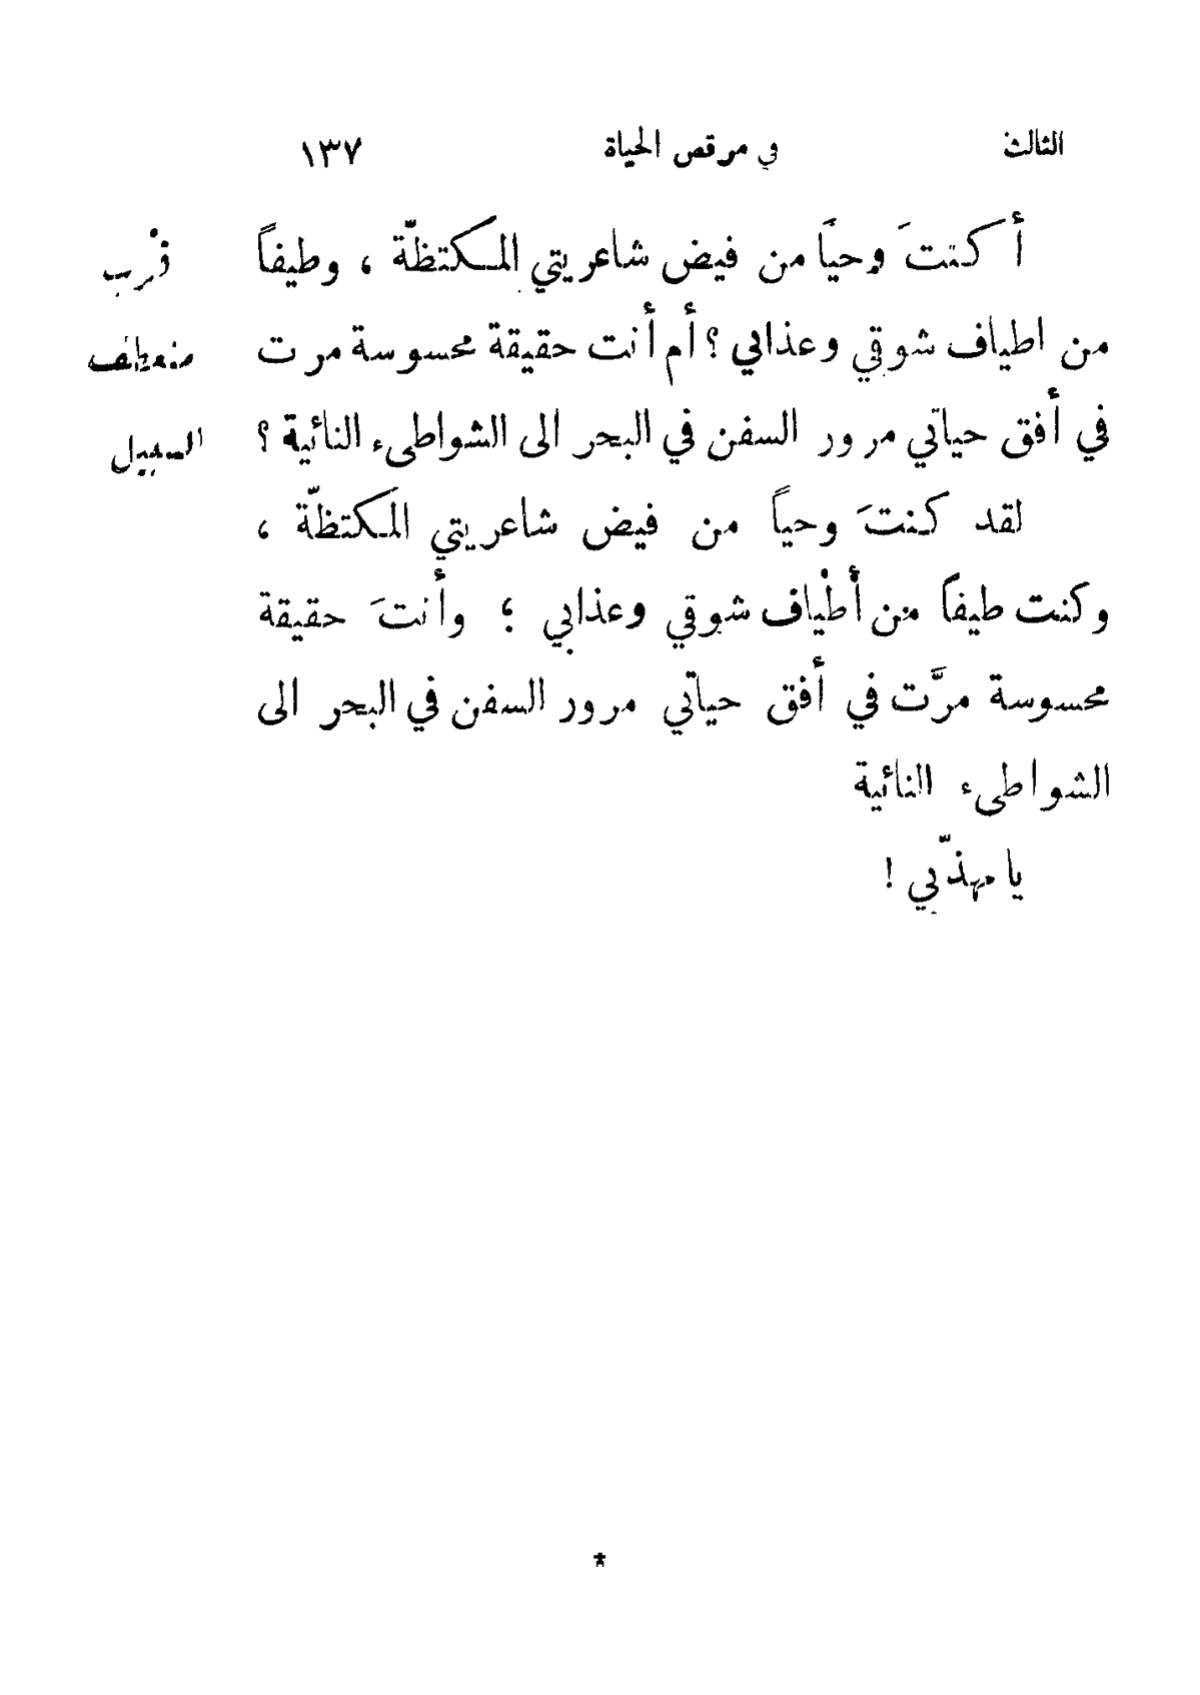 الثالث في مرقص الحياة ١٣٧
أكنتَ وحيًا من فيض شاعريتي المكتظّة ، وطيفاً
من اطياف شوقي وعذابي ؟ أم أنت حقيقة محسوسة مرت
في أفق حياتي مرور السفن في البحر الى الشواطىء النائية ؟
لقد كنتَ وحياً من فيض شاعريتي المكتظّة ،
وكنت طيفاً من أطْياف شوقي وعذابي ؛ وأنتَ حقيقة
محسوسة مرَّت في أفق حياتي مرور السفن في البحر الى
الشواطىء النائية
يا مهذّبي !
قرب
منعطف
السبيل
*